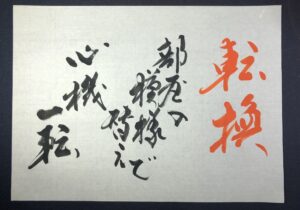 転換
部屋の
模様
替えで
心機
一転